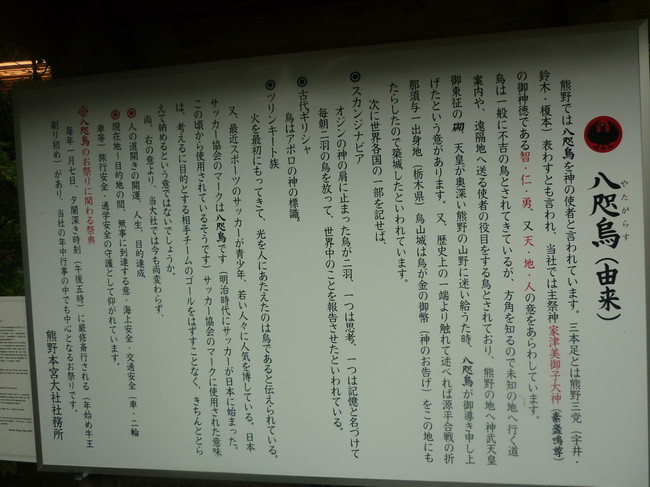 八咫烏（由来）
やたがらす
熊野では八咫烏を神の使者と言われています。三本足とは熊野三党（宇井・
鈴木・榎本）表わすとも言われ、当社では主祭神家津美御子大神（素盞鳴尊）
の御神徳である智・仁・勇、又天・地・人の意をあらわしています。
烏は一般に不吉の鳥とされてきているが、方角を知るので未知の地へ行く道
案内や、遠隔地へ送る使者の役目をする鳥とされており、熊野の地へ神武天皇
御東征の砌、天皇が奥深い熊野の山野に迷い給うた時、八咫烏が御導き申し上
げたという意があります。又、歴史上の一端より触れて述べれば源平合戦の折
那須与一出身地（栃木県）烏山城は烏が金の御幣（神のお告げ）をこの地にも
たらしたので築城したといわれています。
次に世界各国の一部を記せば、
スカンジナビア
オジンの神の肩に止まった烏が二羽、一つは思考、一つは記憶と名づけて
毎朝二羽の烏を放って、世界中のことを報告させたといわれている。
古代ギリシャ
烏はアポロの神の標識。
ツリンキート族
火を最初にもってきて、光を人にあたえたのは烏であると伝えられている。
又、最近スポーツのサッカーが青少年、若い人々に人気を博している。日本
サッカー協会のマークは八咫烏です（明治時代にサッカーが日本に始まった。
この頃から使用されているそうです）サッカー協会のマークに使用された意味
は、考えるに目的とする相手チームのゴールをはずすことなく、きちんととら
えて納めるという意ではないでしょうか。
尚、右の意より、当大社では今も尚変わらず、
人の道開きの開運、人生、目的達成
現在地―目的地の間、無事に到達する意・海上安全・交通安全（車・二輪
車等）旅行安全・通学安全の守護として仰がれています。
八咫烏のお祭りに関わる祭典
毎年一月七日、夕闇深き時刻（午後五時）に厳修斎行される（年始め牛王
刷り初め）があり、当社の年中行事の中でも中心となるお祭りです。
熊野本宮大社社務所